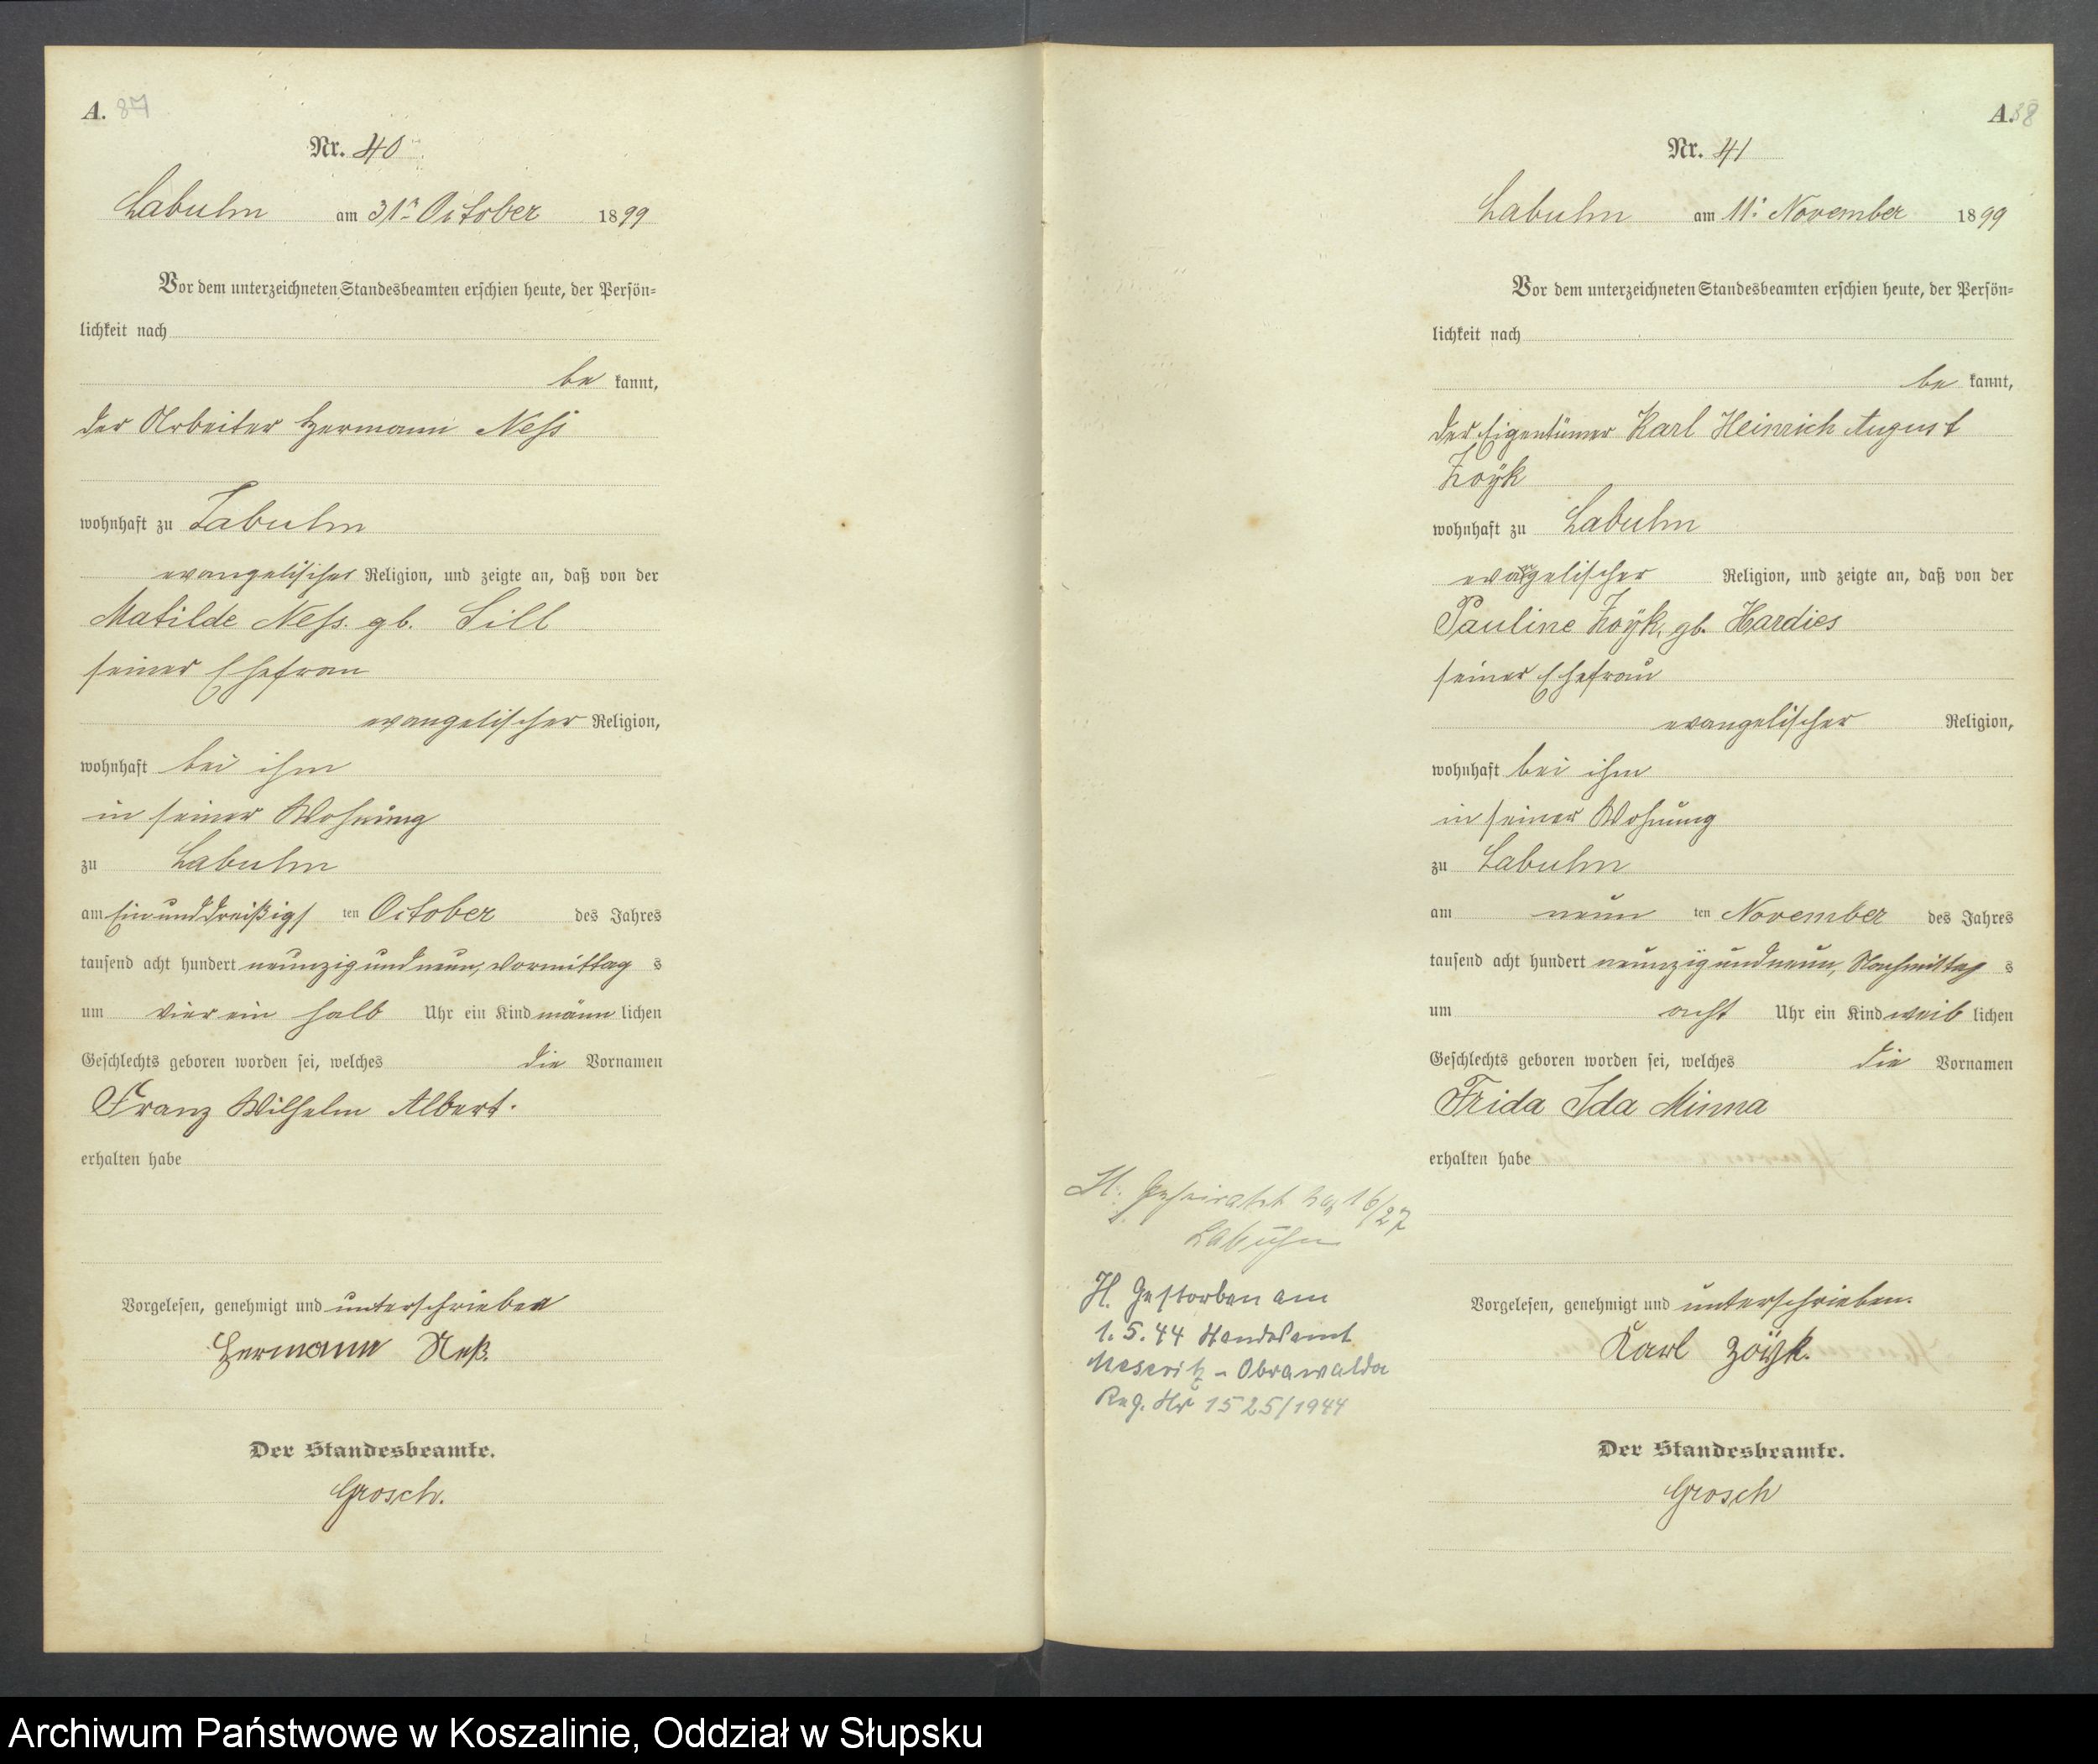 A. 87
Nr. 40
Labuhn am 31. October 1899
Vor dem unterzeichneten Standesbeamten erschien heute, der Persön-
lichkeit nach
be kannt,
der Arbeiter Hermann Ness
wohnhaft zu Labuhn
evangelischer Religion, und zeigte an, daß von der
Matilde Ness. gb. Sill
seiner Ehefrau
evangelischer Religion,
wohnhaft bei ihm
in seiner Wohnung
zu Labuhn
am Einunddreißigs ten October des Jahres
tausend acht hundert neunzigundneun, Vormittag s
um vier ein halb Uhr ein Kind männ lichen
Geschlechts geboren worden sei, welches die Vornamen
Franz Wilhelm Albert.
erhalten habe
Vorgelesen, genehmigt und unterschrieben
Hermann Neß.
Der Standesbeamte.
Grosch.
A. 88
Nr. 41
Labuhn am 11. November 1899
Vor dem unterzeichneten Standesbeamten erschien heute, der Persön-
lichkeit nach
be kannt,
der Eigentümer Karl Heinrich August
Zoÿk
wohnhaft zu Labuhn
evangelischer Religion, und zeigte an, daß von der
Pauline Zoÿk, gb. Hardies
seiner Ehefrau
evangelischer Religion,
wohnhaft bei ihm
in seiner Wohnung
zu Labuhn
am neun ten November des Jahres
tausend acht hundert neunzigundneun, Nachmittag s
um acht Uhr ein Kind weib lichen
Geschlechts geboren worden sei, welches die Vornamen
Frida Ida Minna
erhalten habe
H. Geheiratet 16/27
Labuhn
H. Gestorben am
1.5.44 Standesamt
Meseritz - Obrawalde
Reg. Nr 1525/1944
Vorgelesen, genehmigt und unterschrieben.
Karl Zoÿk.
Der Standesbeamte.
Grosch
Archiwum Państwowe w Koszalinie, Oddział w Słupsku